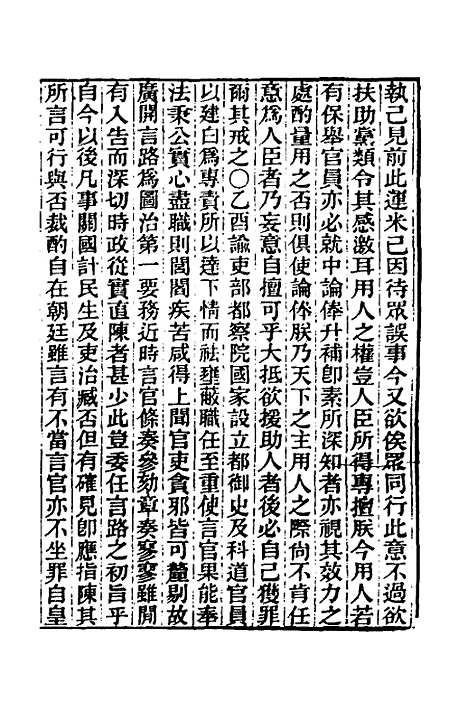 執己見前此運米已因待眾誤事今又欲俟眾同行此意不過欲
扶助黨類令其感激耳用人之權豈人臣所得專擅朕今用人若
有保舉官員亦必就中論俸升補卽素所深知者亦視其效力之
處酌量用之否則俱使論俸朕乃天下之主用人之際尙不肯任
意爲人臣者乃妄意自擅可乎大抵欲援助人者後必自己獲罪
爾其戒之○乙酉諭吏部都察院國家設立都御史及科道官員
以建白爲專責所以達下情而祛壅蔽職任至重使言官果能奉
法秉公實心盡職則閭閻疾苦咸得上聞官吏貪邪皆可釐剔故
廣開言路爲圖治第一要務近時言官條奏參劾章奏寥寥雖閒
有入告而深切時政從實直陳者甚少此豈委任言路之初旨乎
自今以後凡事關國計民生及吏治臧否但有確見卽應指陳其
所言可行與否裁酌自在朝廷雖言有不當言官亦不坐罪自皇